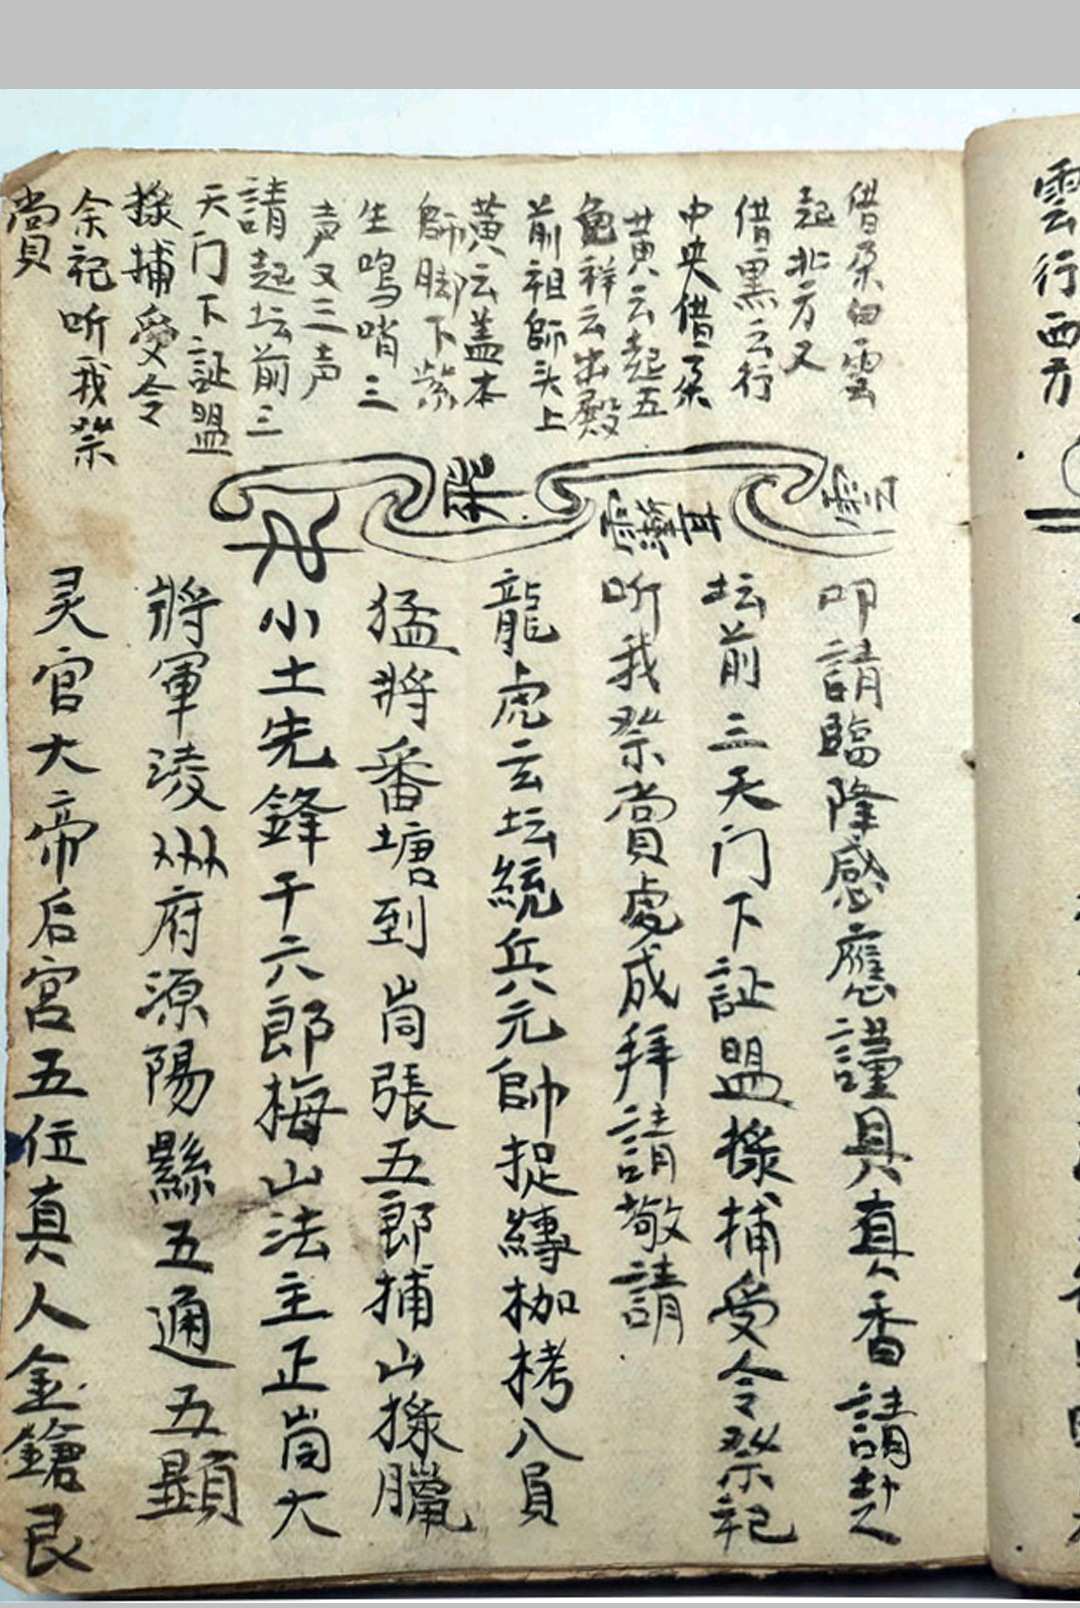 雲行西方
借朵白雲
起北方又
借黑云行
中央借朵
黄云起五
龟祥云出殿
前祖師头上
黃云盖本
師脚下紫
生鳴哨三
声又三声
請起坛前三
天门下証盟
捕受令
余祀听我祭
賞
雲
飛
叩請臨降感應謹具真香請赴
坛前三天门下証盟捕受令祭祀
听我祭賞處成拜請敬請
龍虎云坛統兵元帥捉縛枷栲八員
猛將番塘到崗張五郎捕山
小土先鋒千六郎梅山法主正崗大
將軍淩州府源陽縣五通五顯
灵官大帝后宮五位真人金鎗艮